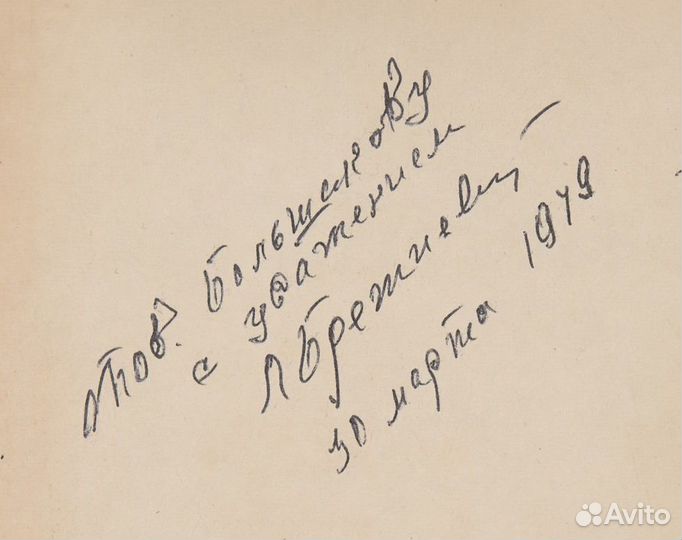 тов. Большакову
с уважением
Л Брежнев
30 марта 1979
Avito